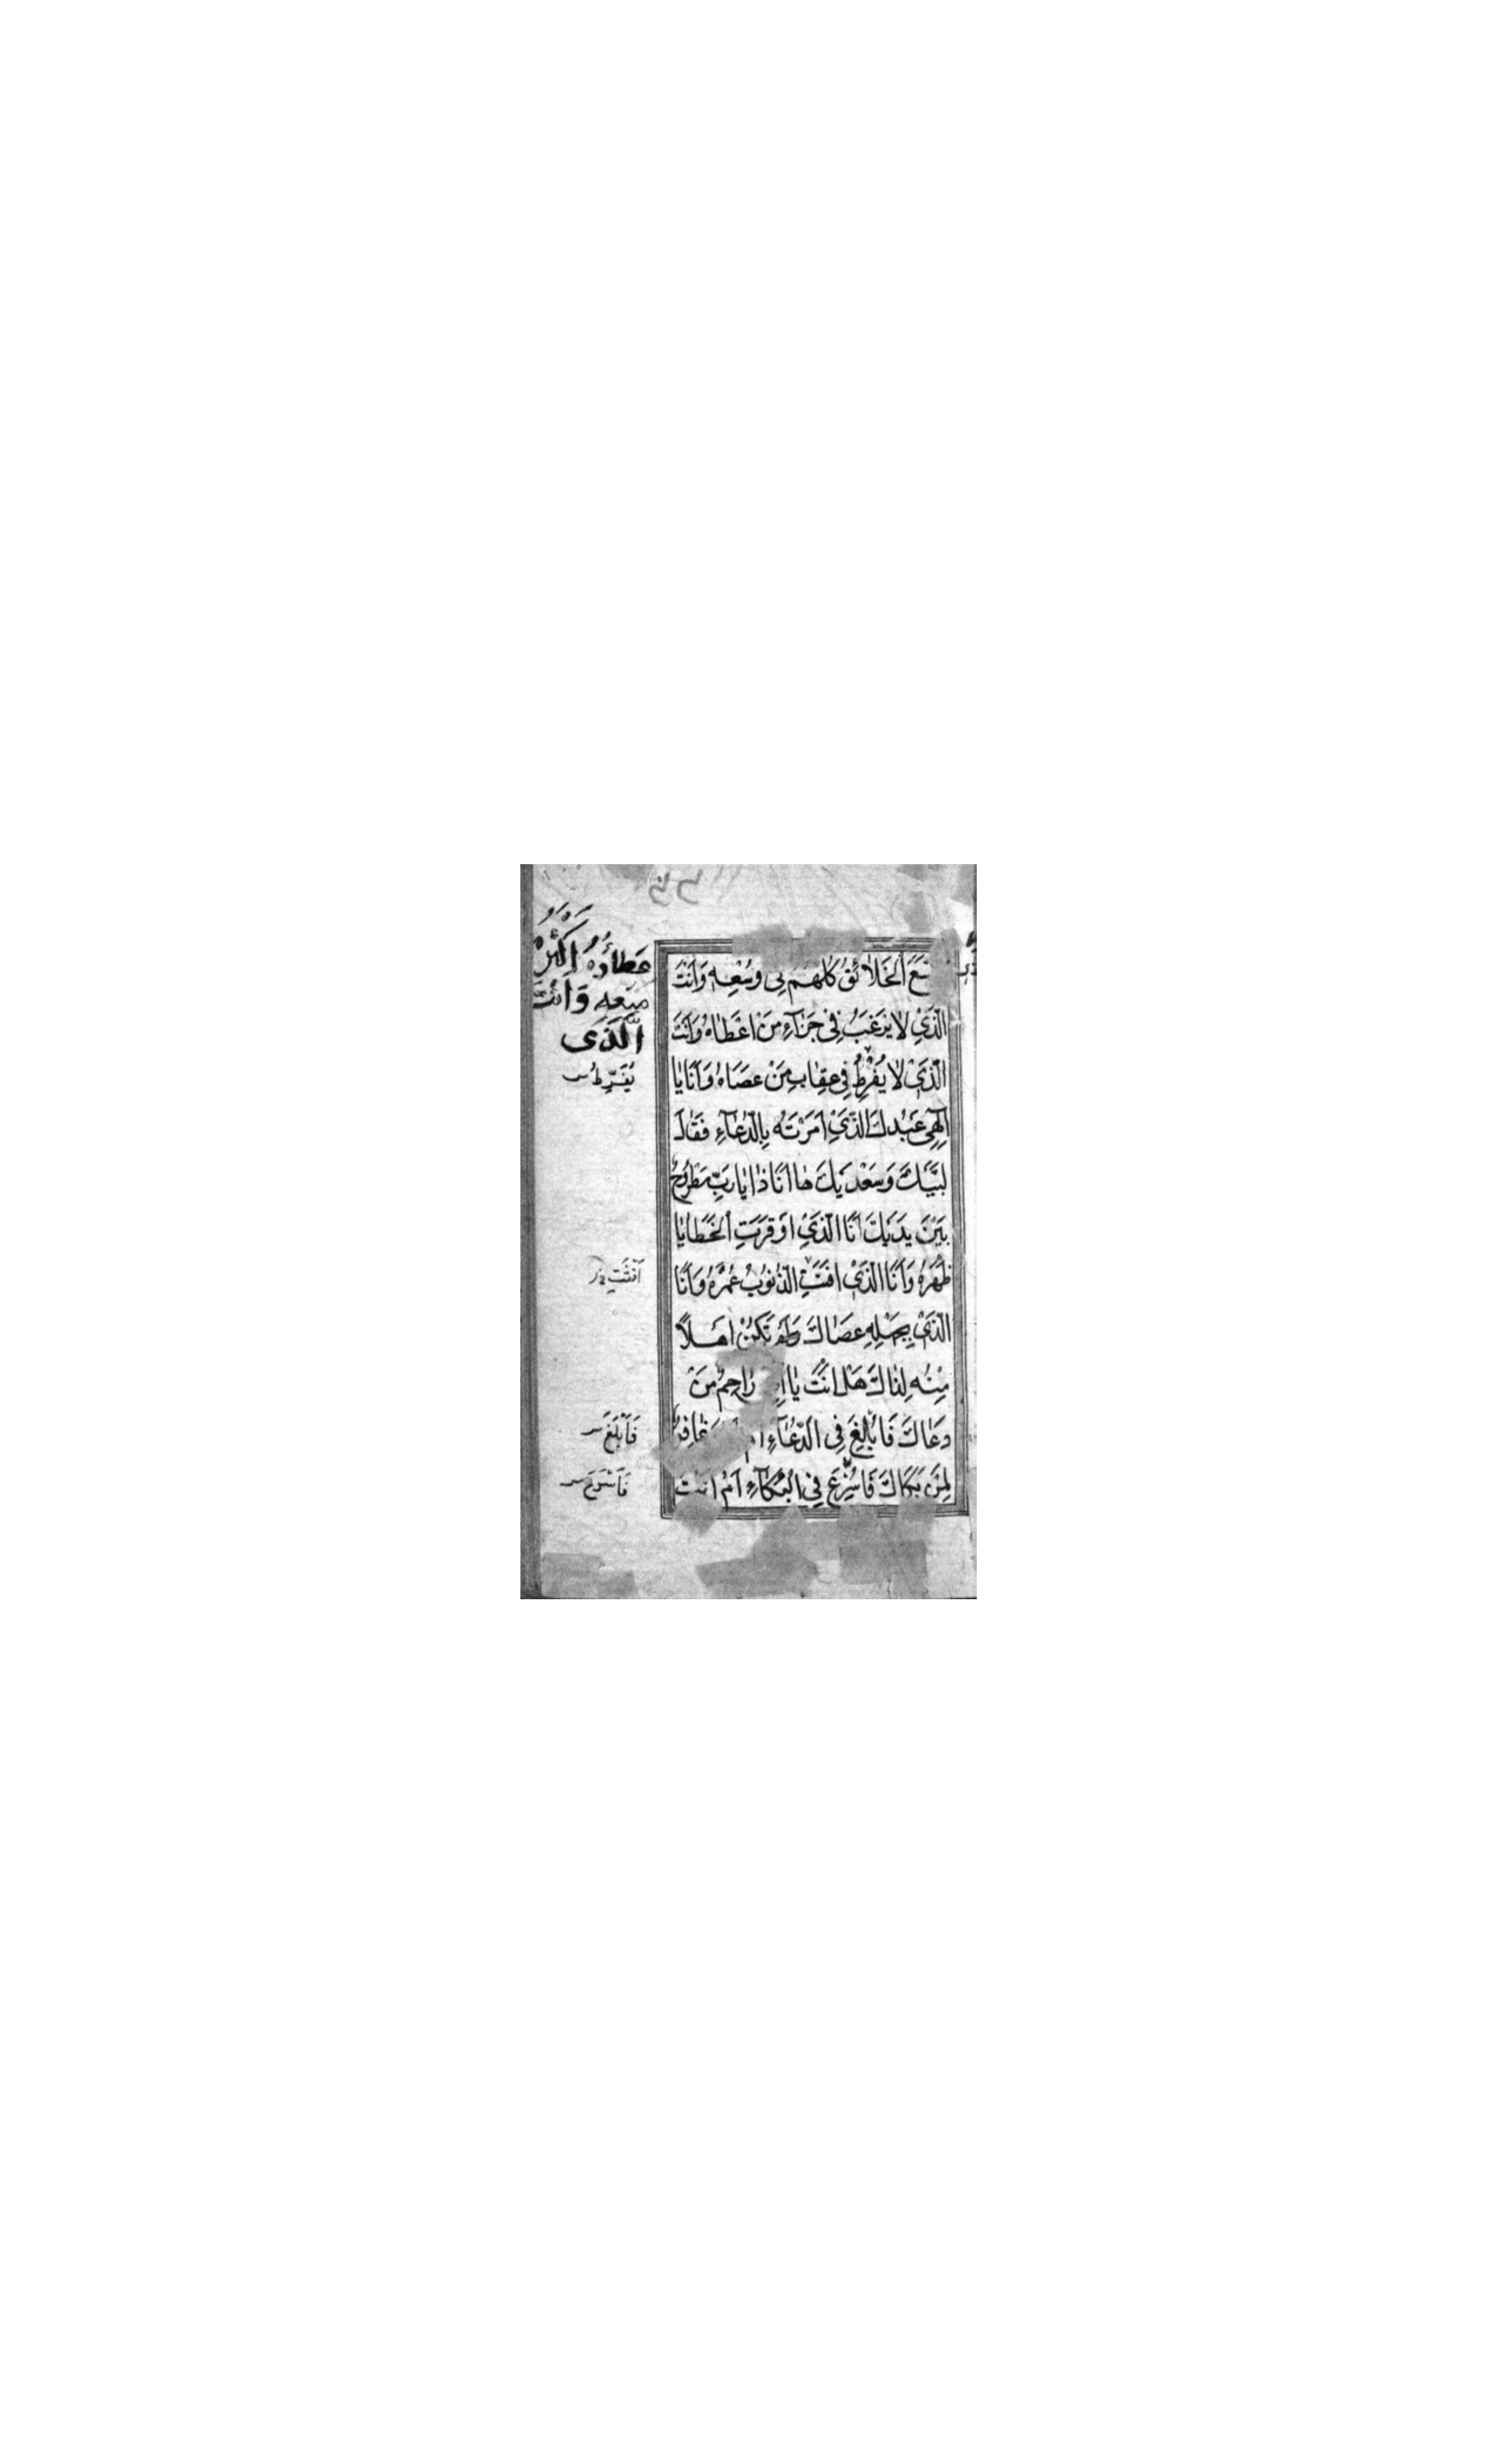 الْخَلاٰئِقُ كُلُّهُمْ فِي وُسْعِهِ وَاَنْتَ
الَّذِيْ لاٰ يَرْغَبُ فِي جَزٰآءِ مَنْ اَعْطٰاهُ وَاَنْتَ
الَّذِيْ لاٰ يُفْرِطُ فِي عِقٰابِ مَنْ عَصَاهُ وَاَنَا يٰا
اِلٰهِي عَبْدُكَ الَّذِيْ اَمَرْتَهُ بِالدُّعٰآءِ فَقٰالَ
لَبَّيْكَ وَسَعْدَيْكَ هٰا اَنَا ذٰا يٰا رَبِّ مَطْرُوحٌ
بَيْنَ يَدَيْكَ اَنَا الَّذِيْ اَوْقَرَتِ الْخَطٰايٰا
ظَهْرَهُ وَاَنَا الَّذِيْ اَفْنَتِ الذُّنُوبُ عُمُرَهُ وَاَنَا
الَّذِيْ بِجَهْلِهِ عَصٰاكَ وَلَمْ تَكُنْ اَهْلاً
مِنْهُ لِذٰاكَ هَلْ اَنْتَ يٰا رٰاحِمٌ مَنْ
دَعٰاكَ فَاُبْلِغَ فِي الدُّعٰآءِ اَمْ غٰافِرٌ
لِمَنْ بَكٰاكَ فَاُسْرِعَ فِي الْبُكٰآءِ اَمْ اَنْتَ
عَطاؤُهُ اَكْثَرُ
مَنْعِهِ وَاَنْتَ
الَّذِى
يُفَرِّطُ س
اَفْنَتِ
فَاَبْلَغَ س
فَاَسْرَعَ س